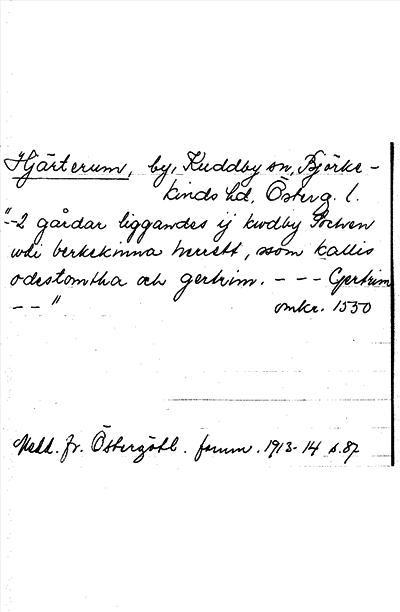 Hjärterum, by, Kuddby sn, Björke-
kinds hd, Österg. l.
"-2 gårdar liggandes ij kwdby Sochen
wdi berkekinna herett, ssom kallis
odestomtha och gertrim. - - - Gertrim
- - "
omkr. 1550
Medd. fr. Östergötl. fornm. 1913-14 s. 87